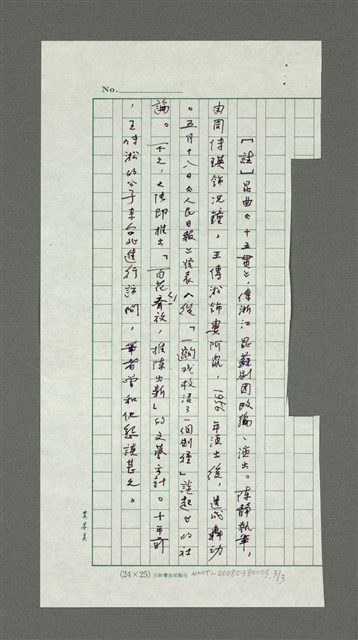 No.
［註］昆曲《十五貫》，係浙江昆蘇劇團改編、演出。陳靜執筆，
由周傳瑛飾況鐘，王傳淞飾婁阿鼠，1956年演出後，造成轟動
。五月十八日《人民日報》發表《從「一齣戲救活了一個劇種」談起》的社
論。不久，大陸即推出「百花齊放，推陳出新」的文藝方針。十年前
，王傳淞的公子來台北進行訪問，筆者曾和他懇談甚久。
(24×25)
NMTL20080380003, 3/3